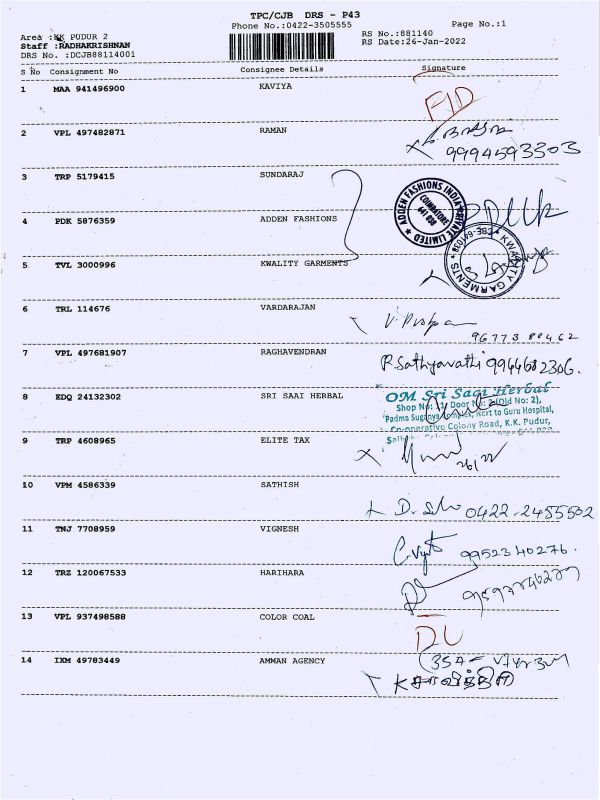 TPC/CJB DRS - P43
Phone No.:0422-3505555
Page No.:1
Area :KK PUDUR 2
Staff :RADHAKRISHNAN
DRS No. :DCJB88114001
RS No.:881140
RS Date:26-Jan-2022
S No Consignment No Consignee Details Signature
1 MAA 941496900 KAVIYA
2 VPL 497482871 RAMAN
9994593303
3 TRP 5179415 SUNDARAJ
4 PDK 5876359 ADDEN FASHIONS
ADDEN FASHIONS INDIA PRIVATE LIMITED
COIMBATORE
641 038
5 TVL 3000996 KWALITY GARMENTS
KWALITY GARMENTS
6 TRL 114676 VARDARAJAN
7 VPL 497681907 RAGHAVENDRAN
P. Sathyavathi 9944682306.
8 EDQ 24132302 SRI SAAI HERBAL
OM Sri Sagi Herbal
Padma Suganya Complex, Next to Guru Hospital,
Co-operative Colony Road, K.K. Pudur,
9 TRP 4608965 ELITE TAX
26/22
10 VPM 4586339 SATHISH
0422-2455502
11 TNJ 7708959 VIGNESH
9952340276.
12 TRZ 120067533 HARIHARA
13 VPL 937498588 COLOR COAL
DU
14 IXM 49783449 AMMAN AGENCY
K சாவித்திரி